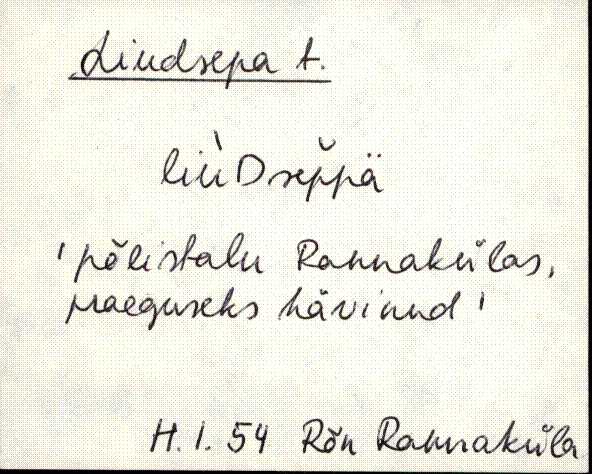 Lindsepa t.
lìǹDsep̆pä
'põlistalu Rannakülas,
praeguseks hävinud'
H. I. 54 Rõn Rannaküla